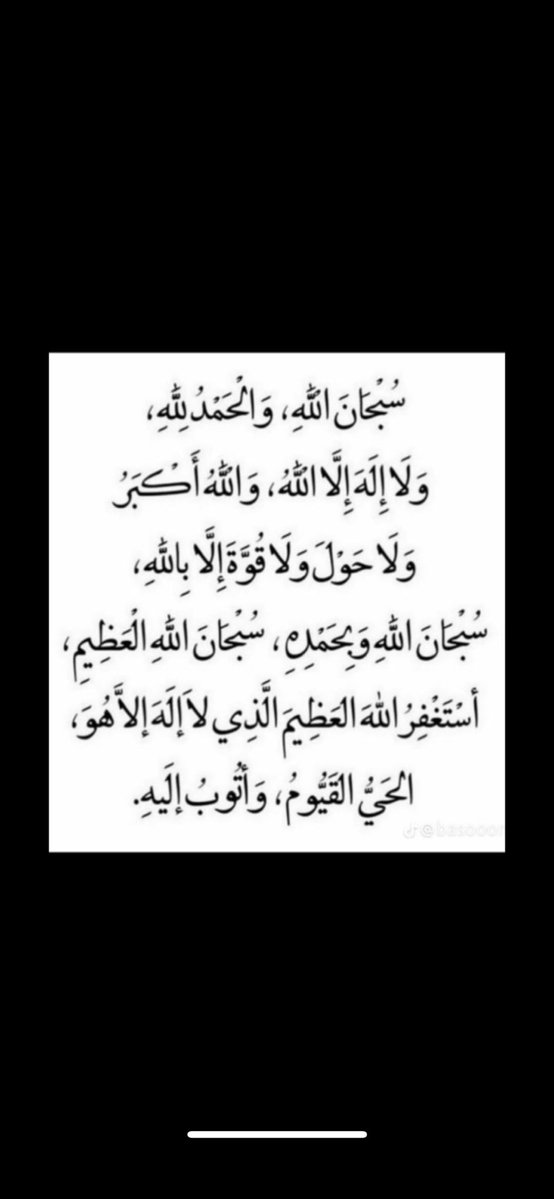 سُبْحَانَ اللهِ، وَالْحَمْدُ لِلَّهِ،
وَلَا إِلَهَ إِلَّا اللهُ، وَاللهُ أَكْبَرُ
وَلَا حَوْلَ وَلَا قُوَّةَ إِلَّا بِاللهِ،
سُبْحَانَ اللهِ وَبِحَمْدِهِ، سُبْحَانَ اللهِ الْعَظِيمِ،
أسْتَغْفِرُ اللهَ العَظِيمَ الَّذِي لاَ إلَهَ إلاَّ هُوَ،
الحَيُّ القَيُّومُ، وَأتُوبُ إلَيهِ.